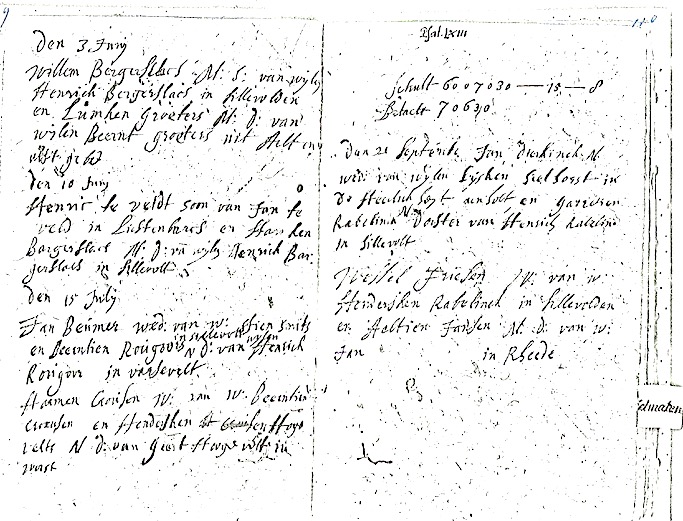 9
den 3 Junij
Willem Bergerslaes N. S. van wylen
Henrich Bergerslaes in sillevolden
en Lumken Groeters N. D. van
wylen Beernt groeters uit Aelten
den 10 Junij
Henric te veldt soon van Jan te
veld in Lichtenberch en Harsken
Bargerslaes N. D. van wylen Henrich Bar
gerslaes in sillevolt
den 15 July
Jan Beumer wed. van w. Stien Smits
in sillevolt wylen
en Beerntien Rougoors N D. van Henrich
Rougoor in varsevelt
Harmen Crousen N. van w. Beerntien
Crousen en Hendersken Hoge
velts N D. van Geert Hoge velt in
wast
Psal. LXIII
Schult 6007030 — 15 — 8
Betaelt 70630
Dan 21 Septemb. Jan Dierkinck N.
wed. van wylen Lysken Seelhorst in
De Heerlich en Garritien
Rabelinck N. Dochter van Henrich Rabelinc
in sillevolt
Wessel Friesen N. van w.
Hendersken Rabelinck in sillevolden
en Aeltien Jansen N. D. van w.
Jan in Rheede
elmaken